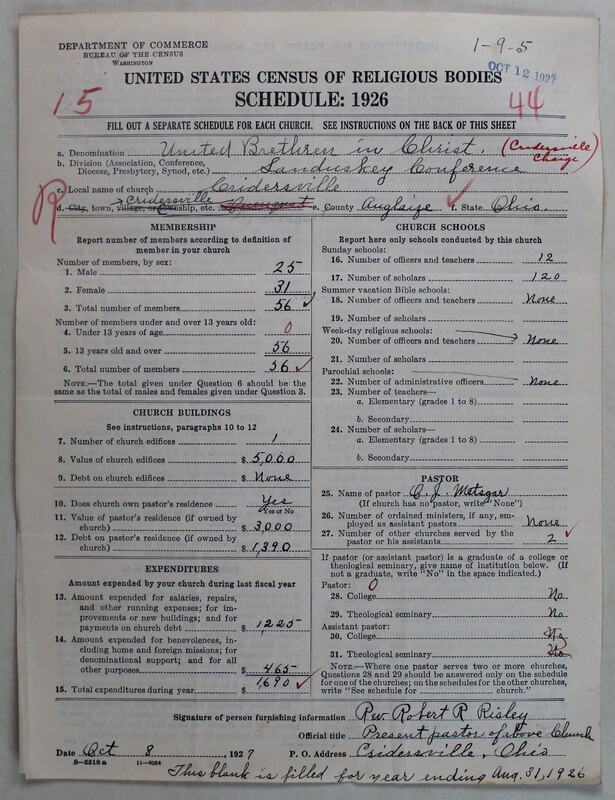 DEPARTMENT OF COMMERCE
BUREAU OF THE CENSUS
WASHINGTON
1-9-5
OCT 12 1927
UNITED STATES CENSUS OF RELIGIOUS BODIES
15
SCHEDULE: 1926
44
FILL OUT A SEPARATE SCHEDULE FOR EACH CHURCH. SEE INSTRUCTIONS ON THE BACK OF THIS SHEET
a. Denomination United Brethren in Christ. (Cridersville Charge)
b. Division (Association, Conference, Diocese, Presbytery, Synod, etc.) Sanduskey Conference
c. Local name of church Cridersville
R
d. City, town, village, or township, etc. Cridersville e. County Auglaize f. State Ohio.
MEMBERSHIP
Report number of members according to definition of member in your church
Number of members, by sex:
1. Male 25
2. Female 31
3. Total number of members 56
Number of members under and over 13 years old:
4. Under 13 years of age 0
5. 13 years old and over 56
6. Total number of members 56
NOTE.—The total given under Question 6 should be the same as the total of males and females given under Question 3.
CHURCH BUILDINGS
See instructions, paragraphs 10 to 12
7. Number of church edifices 1
8. Value of church edifices $ 5,000
9. Debt on church edifices $ None
10. Does church own pastor's residence Yes
Yes or No
11. Value of pastor's residence (if owned by church) $ 3,000
12. Debt on pastor's residence (if owned by church) $ 1,390
EXPENDITURES
Amount expended by your church during last fiscal year
13. Amount expended for salaries, repairs, and other running expenses; for improvements or new buildings; and for payments on church debt $ 1225
14. Amount expended for benevolences, including home and foreign missions; for denominational support; and for all other purposes $ 465
15. Total expenditures during year $ 1,690
CHURCH SCHOOLS
Report here only schools conducted by this church
Sunday schools:
16. Number of officers and teachers 12
17. Number of scholars 120
Summer vacation Bible schools:
18. Number of officers and teachers None
19. Number of scholars
Week-day religious schools:
20. Number of officers and teachers None
21. Number of scholars
Parochial schools:
22. Number of administrative officers None
23. Number of teachers—
a. Elementary (grades 1 to 8)
b. Secondary
24. Number of scholars—
a. Elementary (grades 1 to 8)
b. Secondary
PASTOR
25. Name of pastor C. J. Metsgar
(If church has no pastor, write "None")
26. Number of ordained ministers, if any, employed as assistant pastors None
27. Number of other churches served by the pastor or his assistants 2
If pastor (or assistant pastor) is a graduate of a college or theological seminary, give name of institution below. (If not a graduate, write "No" in the space indicated.)
Pastor: 0
28. College No.
29. Theological seminary No.
Assistant pastor:
30. College No
31. Theological seminary No
NOTE.—Where one pastor serves two or more churches, Questions 28 and 29 should be answered only on the schedule for one of the churches; on the schedules for the other churches, write "See schedule for church."
Signature of person furnishing information Rev. Robert R Risley
Official title Present pastor of above Church
Date Oct 8, 1927 P. O. Address Cridersville, Ohio
8-5518a 11-9034
This blank is filled for year ending Aug. 31, 1926